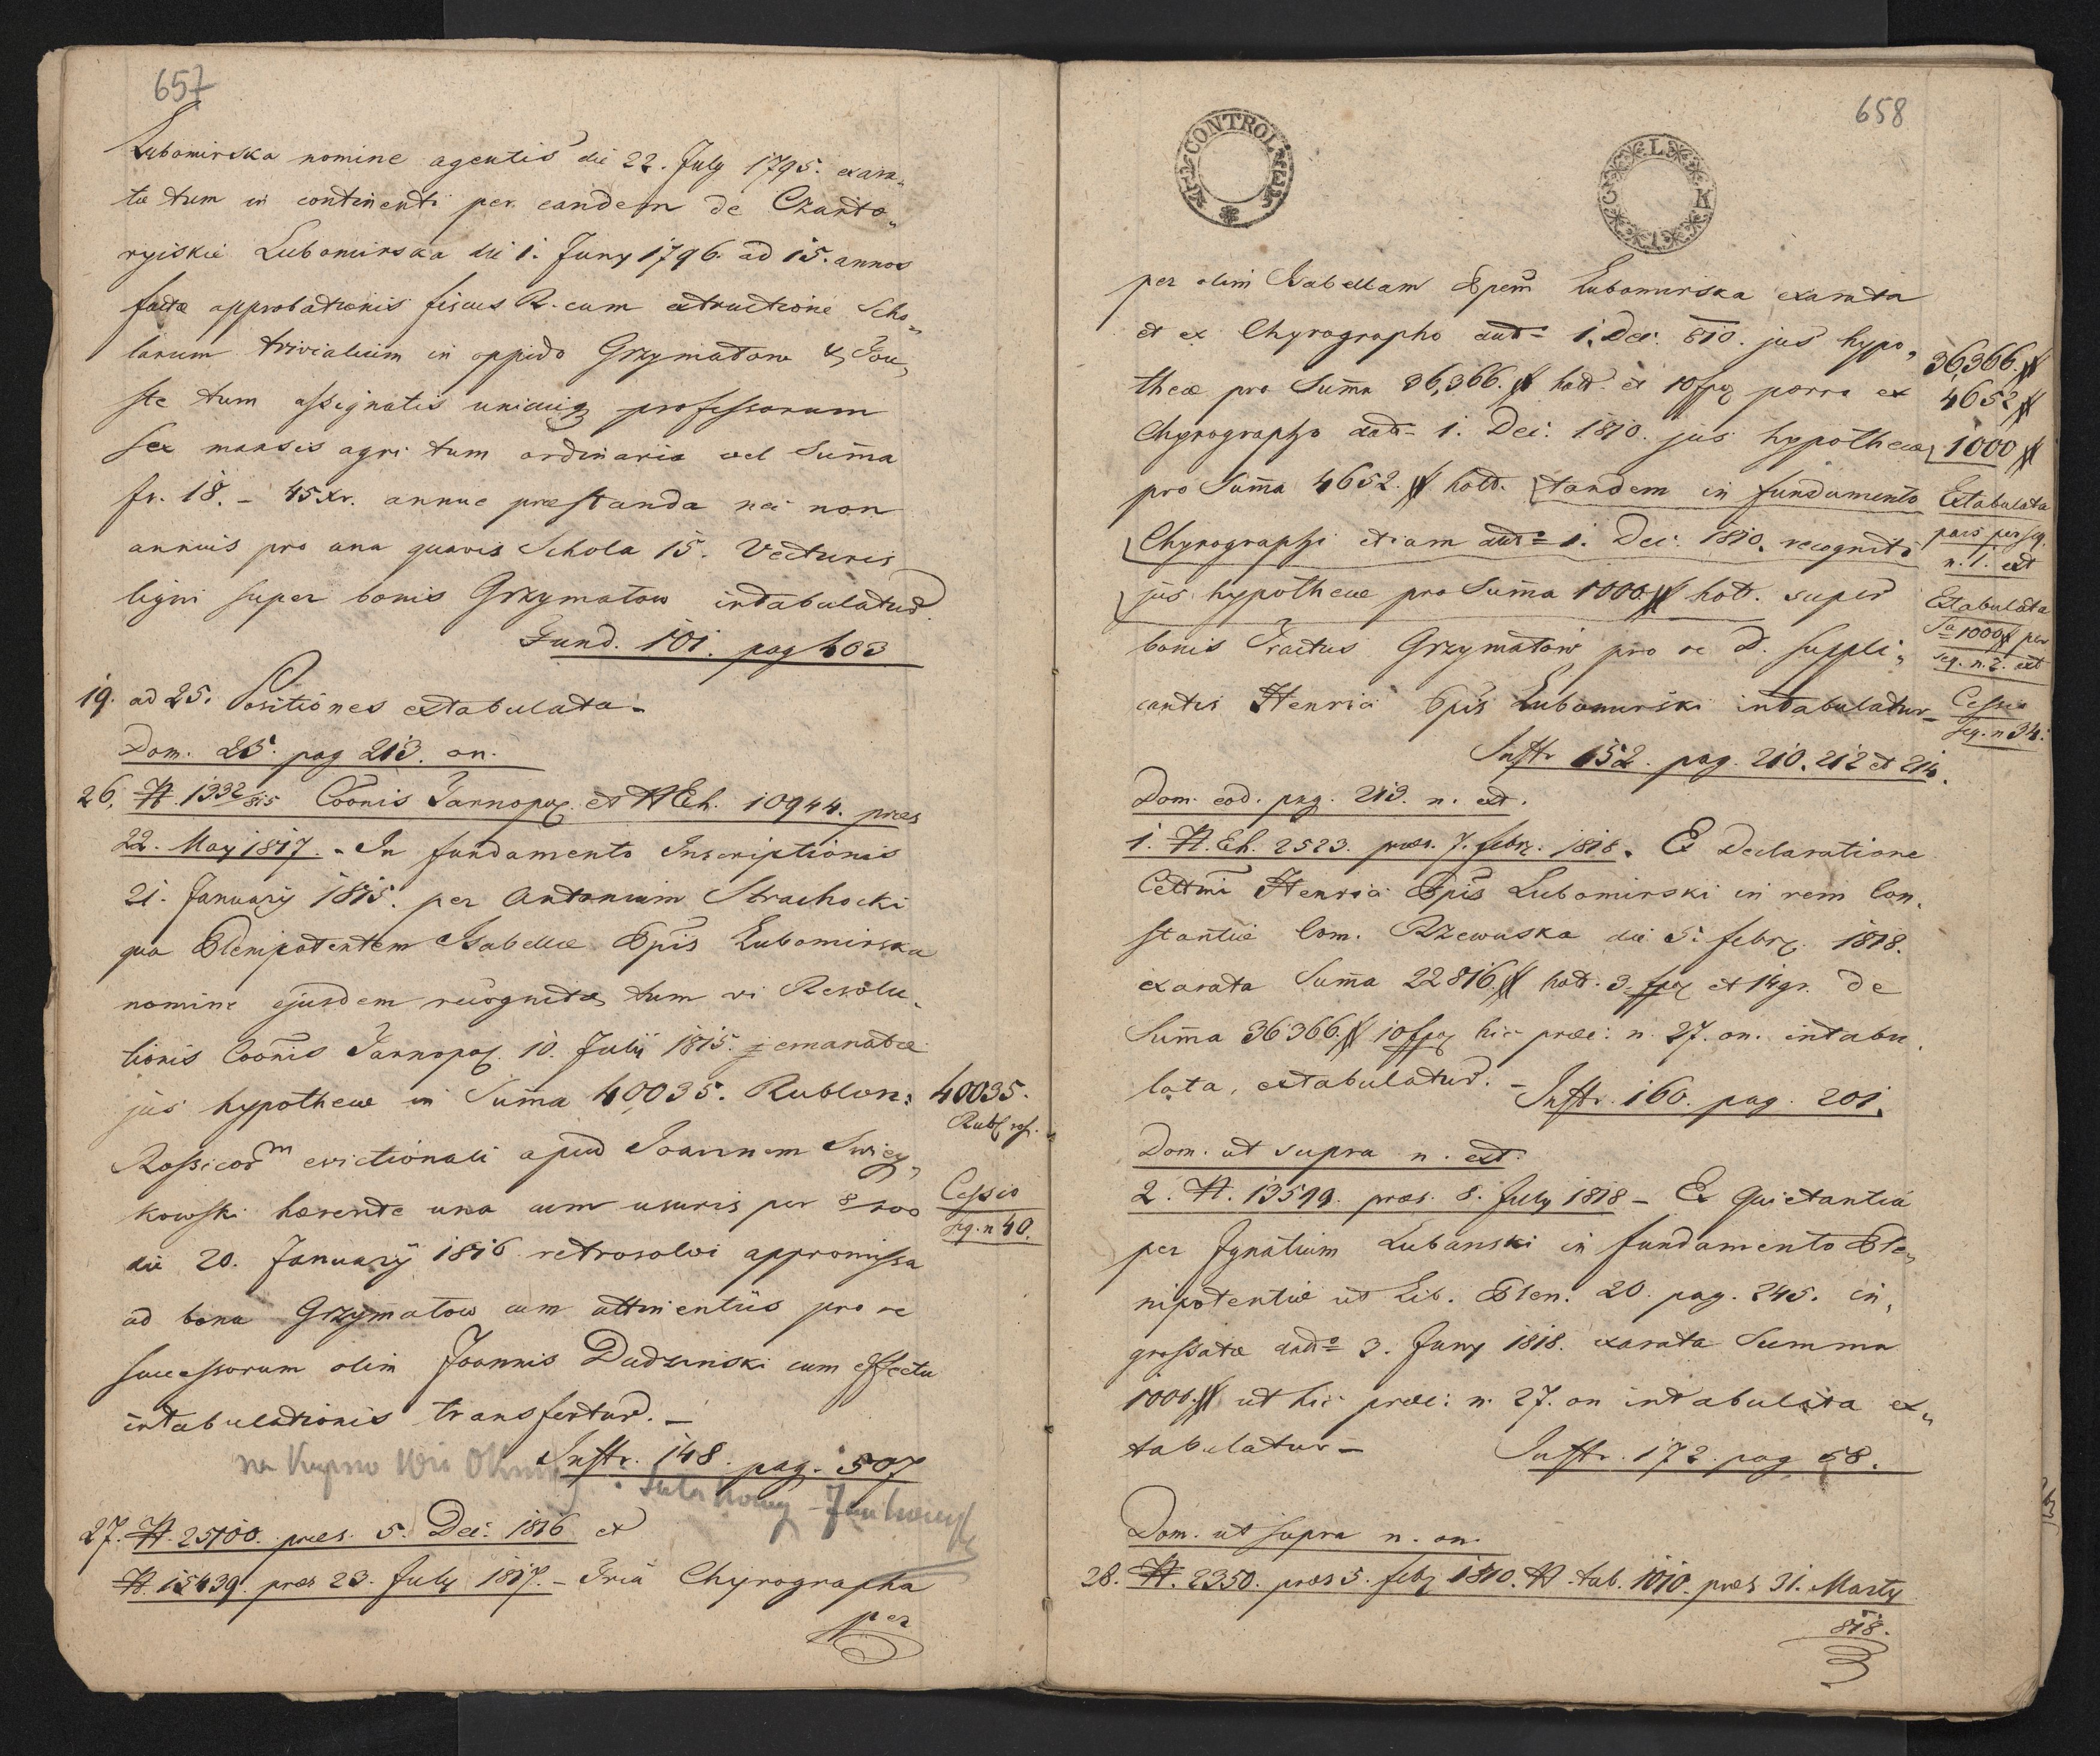 657
Lubomirska nomine agentis die 22. July 1795. exara„
tæ tum in continenti per eandem de Czarto„
ryiskie Lubomirska die 1. Juny 1796. ad 15. annos
factæ approbationis fiscus R. cum extructione Scho„
larum trivialium in oppido Grzymałow &
ste tum assignatis unicuiq professorum
sex mansis agri tum ordinaria vel Summa
fr. 18. – 45 xr. annue præstanda nec non
annuis pro una quavis Schola 15. Vecturis
ligni super bonis Grzymałow intabulatur.
Fund. 101. pag 403
19. ad 25. Positiones extabulata –
Dom. 25. pag 213. on.
26. N. 1332/815 Coonis Tarnopol. et N Eh. 10944. præs
22. May 1817. – In fundamento Inscriptionis
21. January 1815. per Antonium Strachocki
qua Plenipotentem Isabellæ Ppis Lubomirska
nomine ejusdem recognitæ, tum vi Resolu„
tionis Coonis Tarnopol. 10. Julii 1815. emanatæ
jus hypothecæ in Summa 40,035. Rublon:
Rossicorm evictionali apud Joannem Swiey„
kowski hærente una cum usuris per 8 100
die 20. January 1816 retrosolvi appromissa
ad bona Grzymałow cum attinentiis pro re
successorum olim Joannis Dudzinski cum effectu
intabulationis transfertur. –
Instr. 148. pag. 507
27. N. 25100. præs. 5. Dec: 1816 et
N. 15439. præs 23. July 1817. – Tria Chyrographa
per
40035.
Rubl ross.
Cessio
seq. n 40.
658
CONTROL
C L K I
per olim Isabellam Ppem Lubomirska exarata
et ex Chyrographo ddto 1. Dec: 810. jus hypo„
thecæ pro Summa 36,366. # holl. et 10 fpol porro ex
Chyrographo ddto 1. Dec: 1810. jus hypothecæ
pro Summa 4652. # holl. tandem in fundamento
Chyrographi etiam ddto 1. Dec: 1810. recogniti
jus hypothecæ pro Summa 1000 # holl. super
bonis Tractus Grzymałow pro re D. suppli„
cantis Henrici Ppis Lubomirski intabulatur –
Instr 152. pag. 210. 212 et 214.
36,366. #
4652 #
1000 #
Extabulata
pars per seq.
n. 1. ext
Extabulata
Sa 1000 # per
seq. n. 2. ext
Cessio
seq. n 34.
Dom. eod. pag. 213. n. ext.
1. N. Eh. 2523. præs. 7. febr. 1818. Ex Declaratione
Celsmi Henrici Ppis Lubomirski in rem Con„
stantiæ Com. Rzewuska die 5. febr. 1818.
exarata Summa 22816. # holl. 3. fpol et 14 gr. de
Summa 36366. # 10 fpol hic præc: n. 27. on. intabu„
lata, extabulatur. –
Instr. 160. pag. 201.
Dom. ut supra n. ext.
2. N. 13599. præs. 8. July 1818 – Ex Quietantia
per Ignatium Lubanski in fundamento Ple„
nipotentiæ ut Lib. Plen: 20. pag. 245. in„
grossatæ ddto 3. Juny 1818. exarata Summa
1000. # ut hic præc: n. 27. on intabulata ex„
tabulatur –
Instr. 172. pag 58.
Dom. ut supra n. on.
28. N. 2350. præs 5. feb. 1810. N. tab. 1010. præs 31. Marty
818.